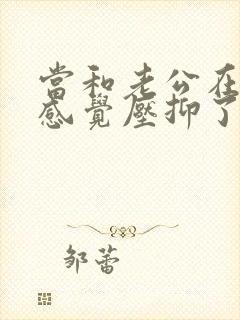 當和老公在
感覺壓抑了
邹蕾